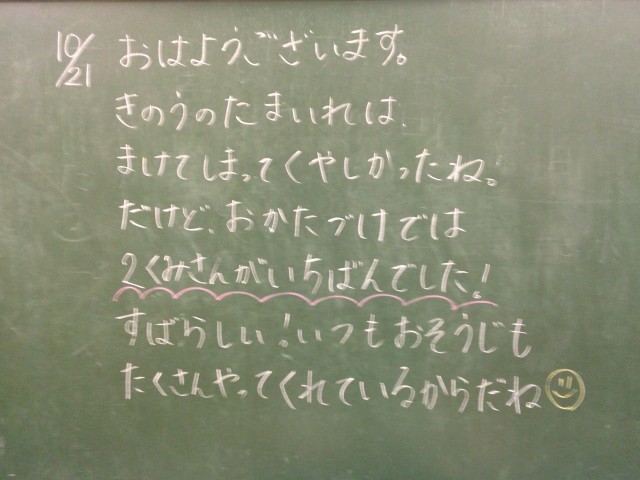 10/21 おはようございます。
きのうのたまいれは、
まけてしまってくやしかったね。
だけど、おかたづけでは
2くみさんがいちばんでした!
すばらしい!いつもおそうじも
たくさんやってくれているからだね